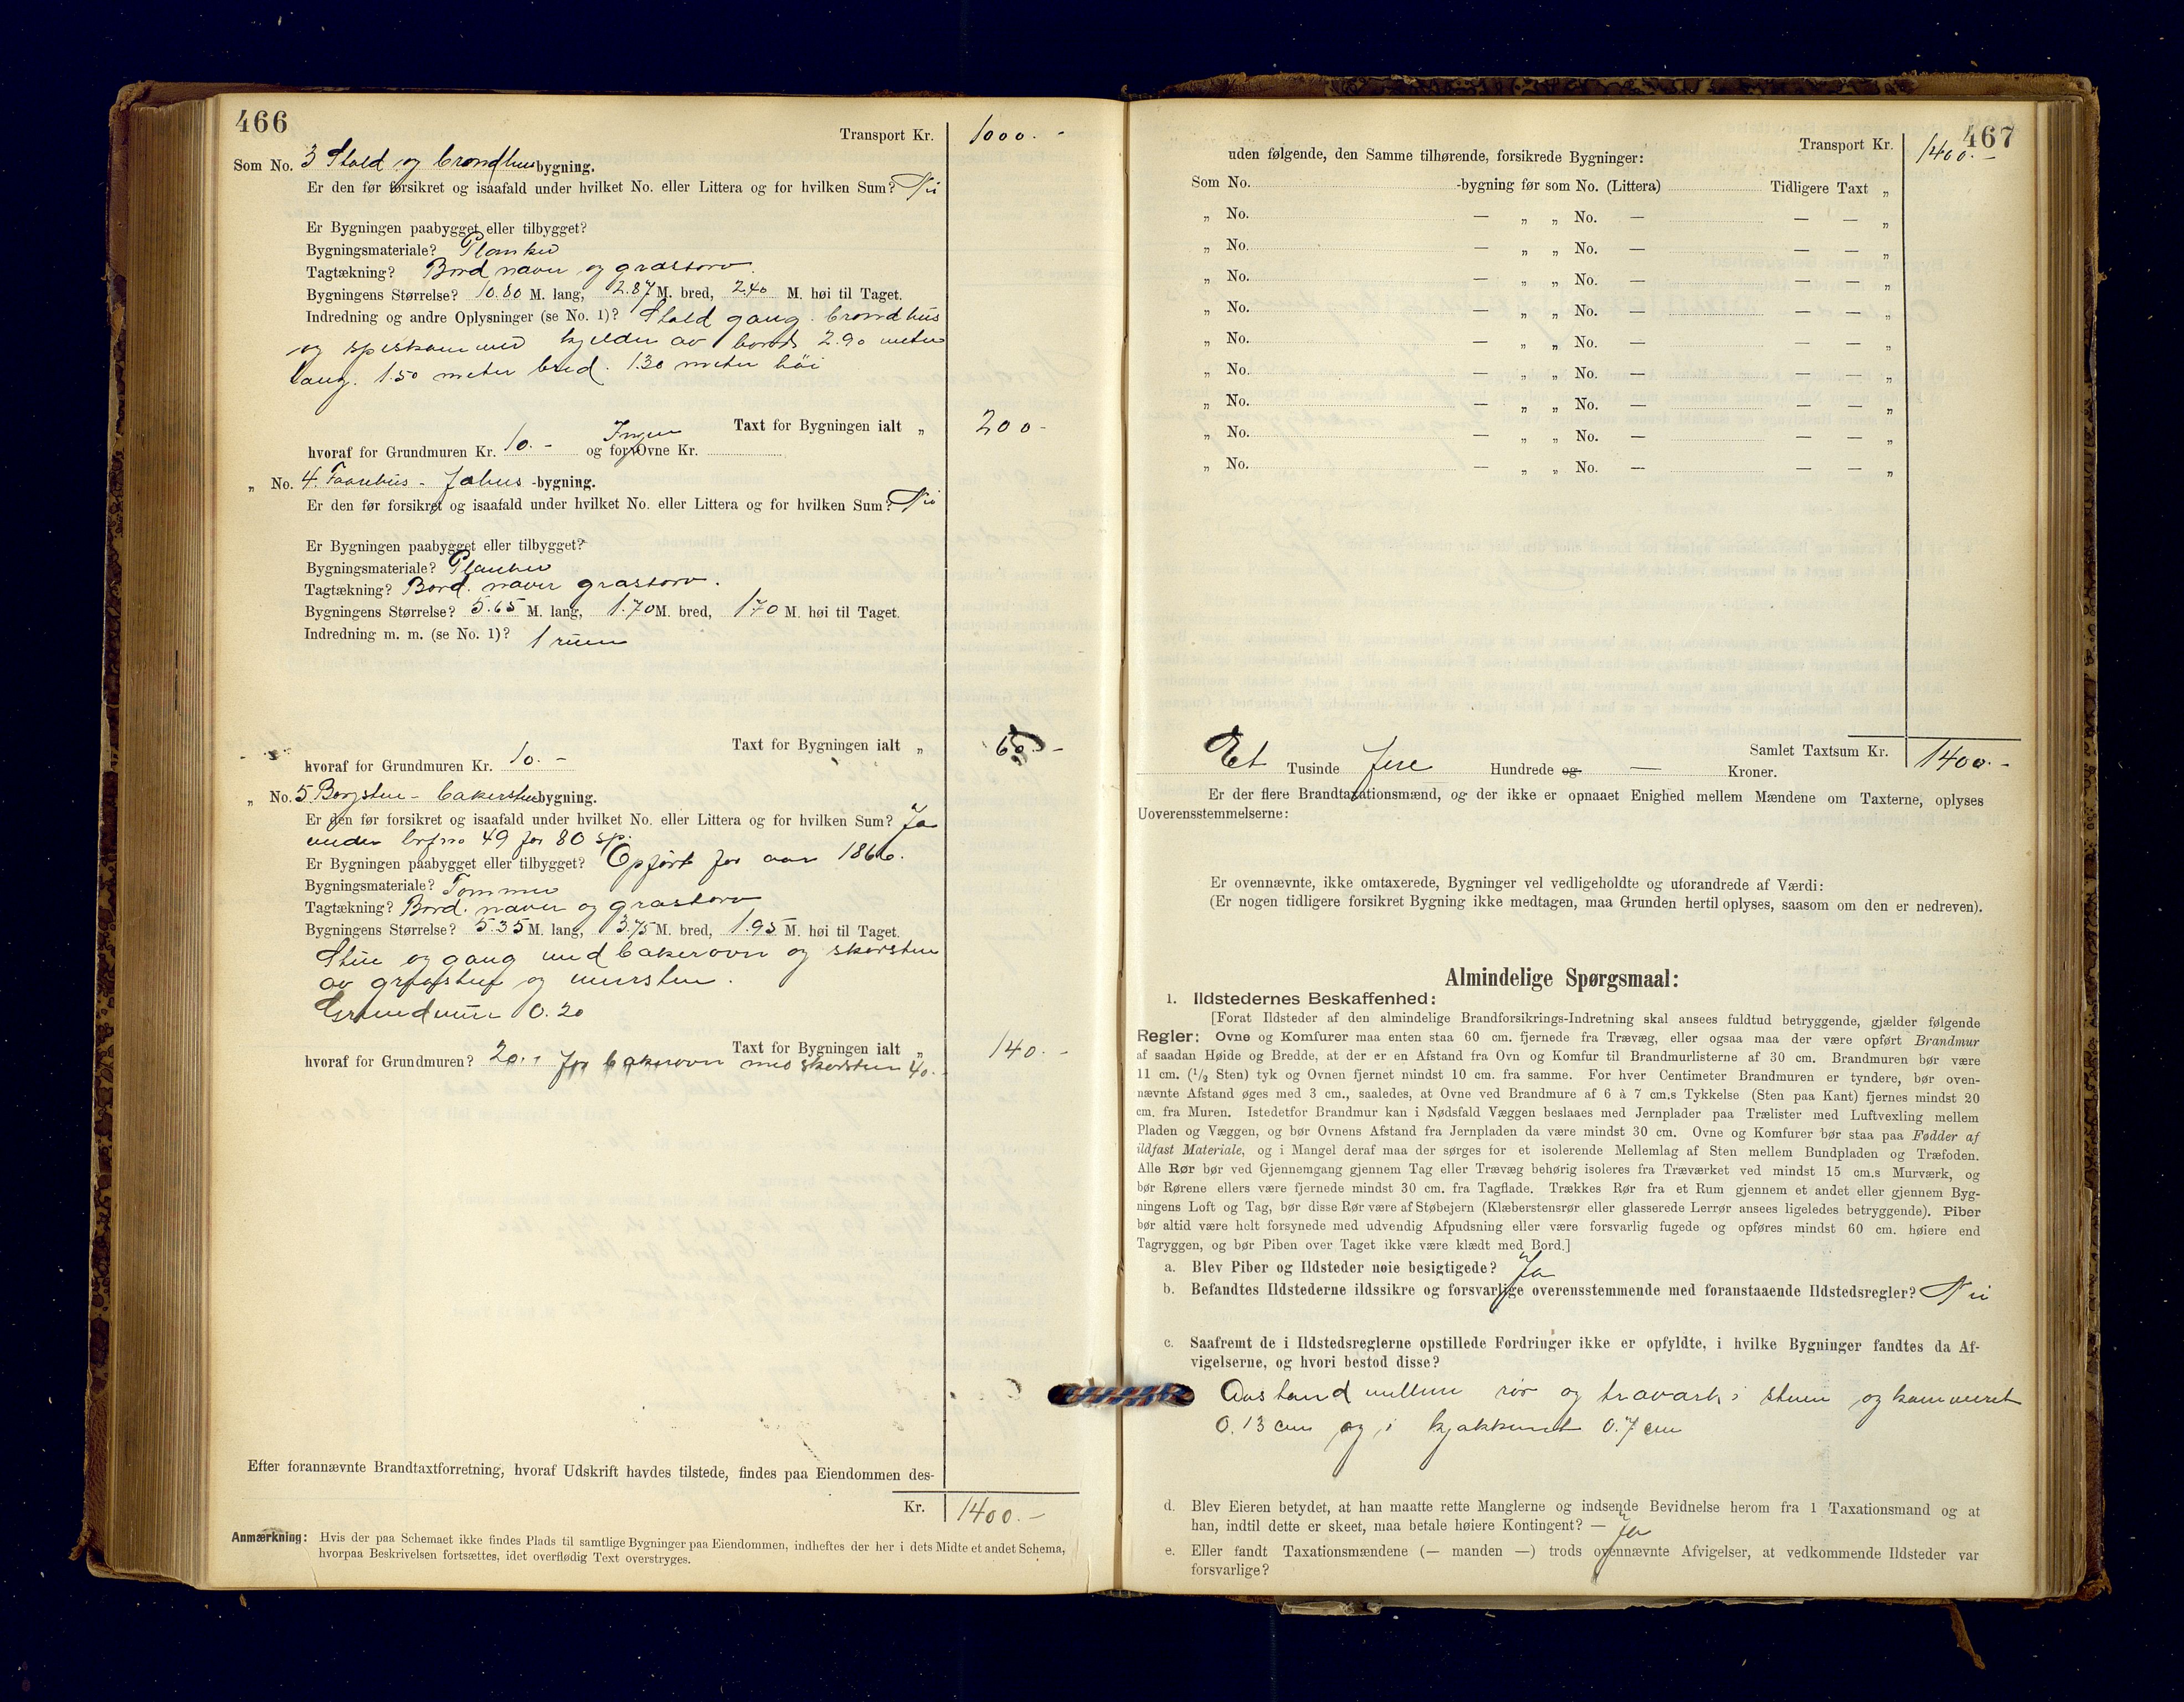 466
Transport Kr. 1000.-
Som No. 3 Stald og brændhus bygning.
Er den før forsikret og isaafald under hvilket No. eller Littera og for hvilken Sum? Nei
Er Bygningen paabygget eller tilbygget?
Bygningsmateriale? Planker
Tagtækning? Bord næver og græstorv.
Bygningens Størrelse? 10.80 M. lang, 2.87 M. bred, 2.40 M. høi til Taget.
Indredning og andre Oplysninger (se No. 1)? Stald gang. brændhus
og spiskammer kjelder av bord 2.90 meter
lang. 1.50 meter bred. 1.30 meter høi
Taxt for Bygningen ialt „ 200-
hvoraf for Grundmuren Kr. 10.- og for Ovne Kr. Ingen
„ No. 4. - bygning.
Er den før forsikret og isaafald under hvilket No. eller Littera og for hvilken Sum? Nei
Er Bygningen paabygget eller tilbygget?
Bygningsmateriale? Planker
Tagtækning? Bord. næver græstorv.
Bygningens Størrelse? 5.65 M. lang, 1.70 M. bred, 1.70 M. høi til Taget.
Indredning m. m. (se No. 1)? 1 rum
Taxt for Bygningen ialt „ 60.-
hvoraf for Grundmuren Kr. 10.-
„ No. 5 Borgstue - bakerstue bygning.
Er den før forsikret og isaafald under hvilket No. eller Littera og for hvilken Sum? Ja
under brfno 49 for 80 sp.
Er Bygningen paabygget eller tilbygget? Opført før aar 1866.
Bygningsmateriale? Tømmer
Tagtækning? Bord. næver og græstorv
Bygningens Størrelse? 5.35 M. lang, 3.75 M. bred, 1.95 M. høi til Taget.
Stue og gang med bakerovn og skorsten
av og mursten.
Grundmur 0.20
Taxt for Bygningen ialt „ 140.-
hvoraf for Grundmuren? 20.- for bakerovn med skorsten 40.-
Efter forannævnte Brandtaxtforretning, hvoraf Udskrift havdes tilstede, findes paa Eiendommen des-
Kr. 1400.-
Anmærkning: Hvis der paa Schemaet ikke findes Plads til samtlige Bygninger paa Eiendommen, indheftes der her i dets Midte et andet Schema,
hvorpaa Beskrivelsen fortsættes, idet overflødig Text overstryges.
467
Transport Kr. 1400.-
uden følgende, den Samme tilhørende, forsikrede Bygninger:
Som No. -bygning før som No. (Littera) Tidligere Taxt „
„ No. — „ „ No. — — — „
„ No. — „ „ No. — — — „
„ No. — „ „ No. — — — „
„ No. — „ „ No. — — — „
„ No. — „ „ No. — — — „
„ No. — „ „ No. — — — „
„ No. — „ „ No. — — — „
„ No. — „ „ No. — — — „
„ No. — „ „ No. — — — „
Samlet Taxtsum Kr. 1400.-
Et Tusinde fire Hundrede og — Kroner.
Er der flere Brandtaxationsmænd, og der ikke er opnaaet Enighed mellem Mændene om Taxterne, oplyses
Uoverensstemmelserne:
Er ovennævnte, ikke omtaxerede, Bygninger vel vedligeholdte og uforandrede af Værdi:
(Er nogen tidligere forsikret Bygning ikke medtagen, maa Grunden hertil oplyses, saasom om den er nedreven).
Almindelige Spørgsmaal:
1. Ildstedernes Beskaffenhed:
[Forat Ildsteder af den almindelige Brandforsikrings-Indretning skal ansees fuldtud betryggende, gjælder følgende
Regler: Ovne og Komfurer maa enten staa 60 cm. fjernede fra Trævæg, eller ogsaa maa der være opført Brandmur
af saadan Høide og Bredde, at der er en Afstand fra Ovn og Komfur til Brandmurlisterne af 30 cm. Brandmuren bør være
11 cm. (1/2 Sten) tyk og Ovnen fjernet mindst 10 cm. fra samme. For hver Centimeter Brandmuren er tyndere, bør oven-
nævnte Afstand øges med 3 cm., saaledes, at Ovne ved Brandmure af 6 à 7 cm.s Tykkelse (Sten paa Kant) fjernes mindst 20
cm. fra Muren. Istedetfor Brandmur kan i Nødsfald Væggen beslaaes med Jernplader paa Trælister med Luftvexling mellem
Pladen og Væggen, og bør Ovnens Afstand fra Jernpladen da være mindst 30 cm. Ovne og Komfurer bør staa paa Fødder af
ildfast Materiale, og i Mangel deraf maa der sørges for et isolerende Mellemlag af Sten mellem Bundpladen og Træfoden.
Alle Rør bør ved Gjennemgang gjennem Tag eller Trævæg behørig isoleres fra Træværket ved mindst 15 cm.s Murværk, og
bør Rørene ellers være fjernede mindst 30 cm. fra Tagflade. Trækkes Rør fra et Rum gjennem et andet eller gjennem Byg-
ningens Loft og Tag, bør disse Rør være af Støbejern (Klæberstensrør eller glasserede Lerrør ansees ligeledes betryggende). Piber
bør altid være helt forsynede med udvendig Afpudsning eller være forsvarlig fugede og opføres mindst 60 cm. høiere end
Tagryggen, og bør Piben over Taget ikke være klædt med Bord.]
a. Blev Piber og Ildsteder nøie besigtigede? Ja
b. Befandtes Ildstederne ildssikre og forsvarlige overensstemmende med foranstaaende Ildstedsregler? Nei
c. Saafremt de i Ildstedsreglerne opstillede Fordringer ikke er opfyldte, i hvilke Bygninger fandtes da Af-
vigelserne, og hvori bestod disse?
Avstand mellem rør og træværk i stuen og kammeret
0.13 cm og i kjøkkenet 0.7 cm
d. Blev Eieren betydet, at han maatte rette Manglerne og indsende Bevidnelse herom fra 1 Taxationsmand og at
han, indtil dette er skeet, maa betale høiere Kontingent? — Ja
e. Eller fandt Taxationsmændene (— manden —) trods ovennævnte Afvigelser, at vedkommende Ildsteder var
forsvarlige?